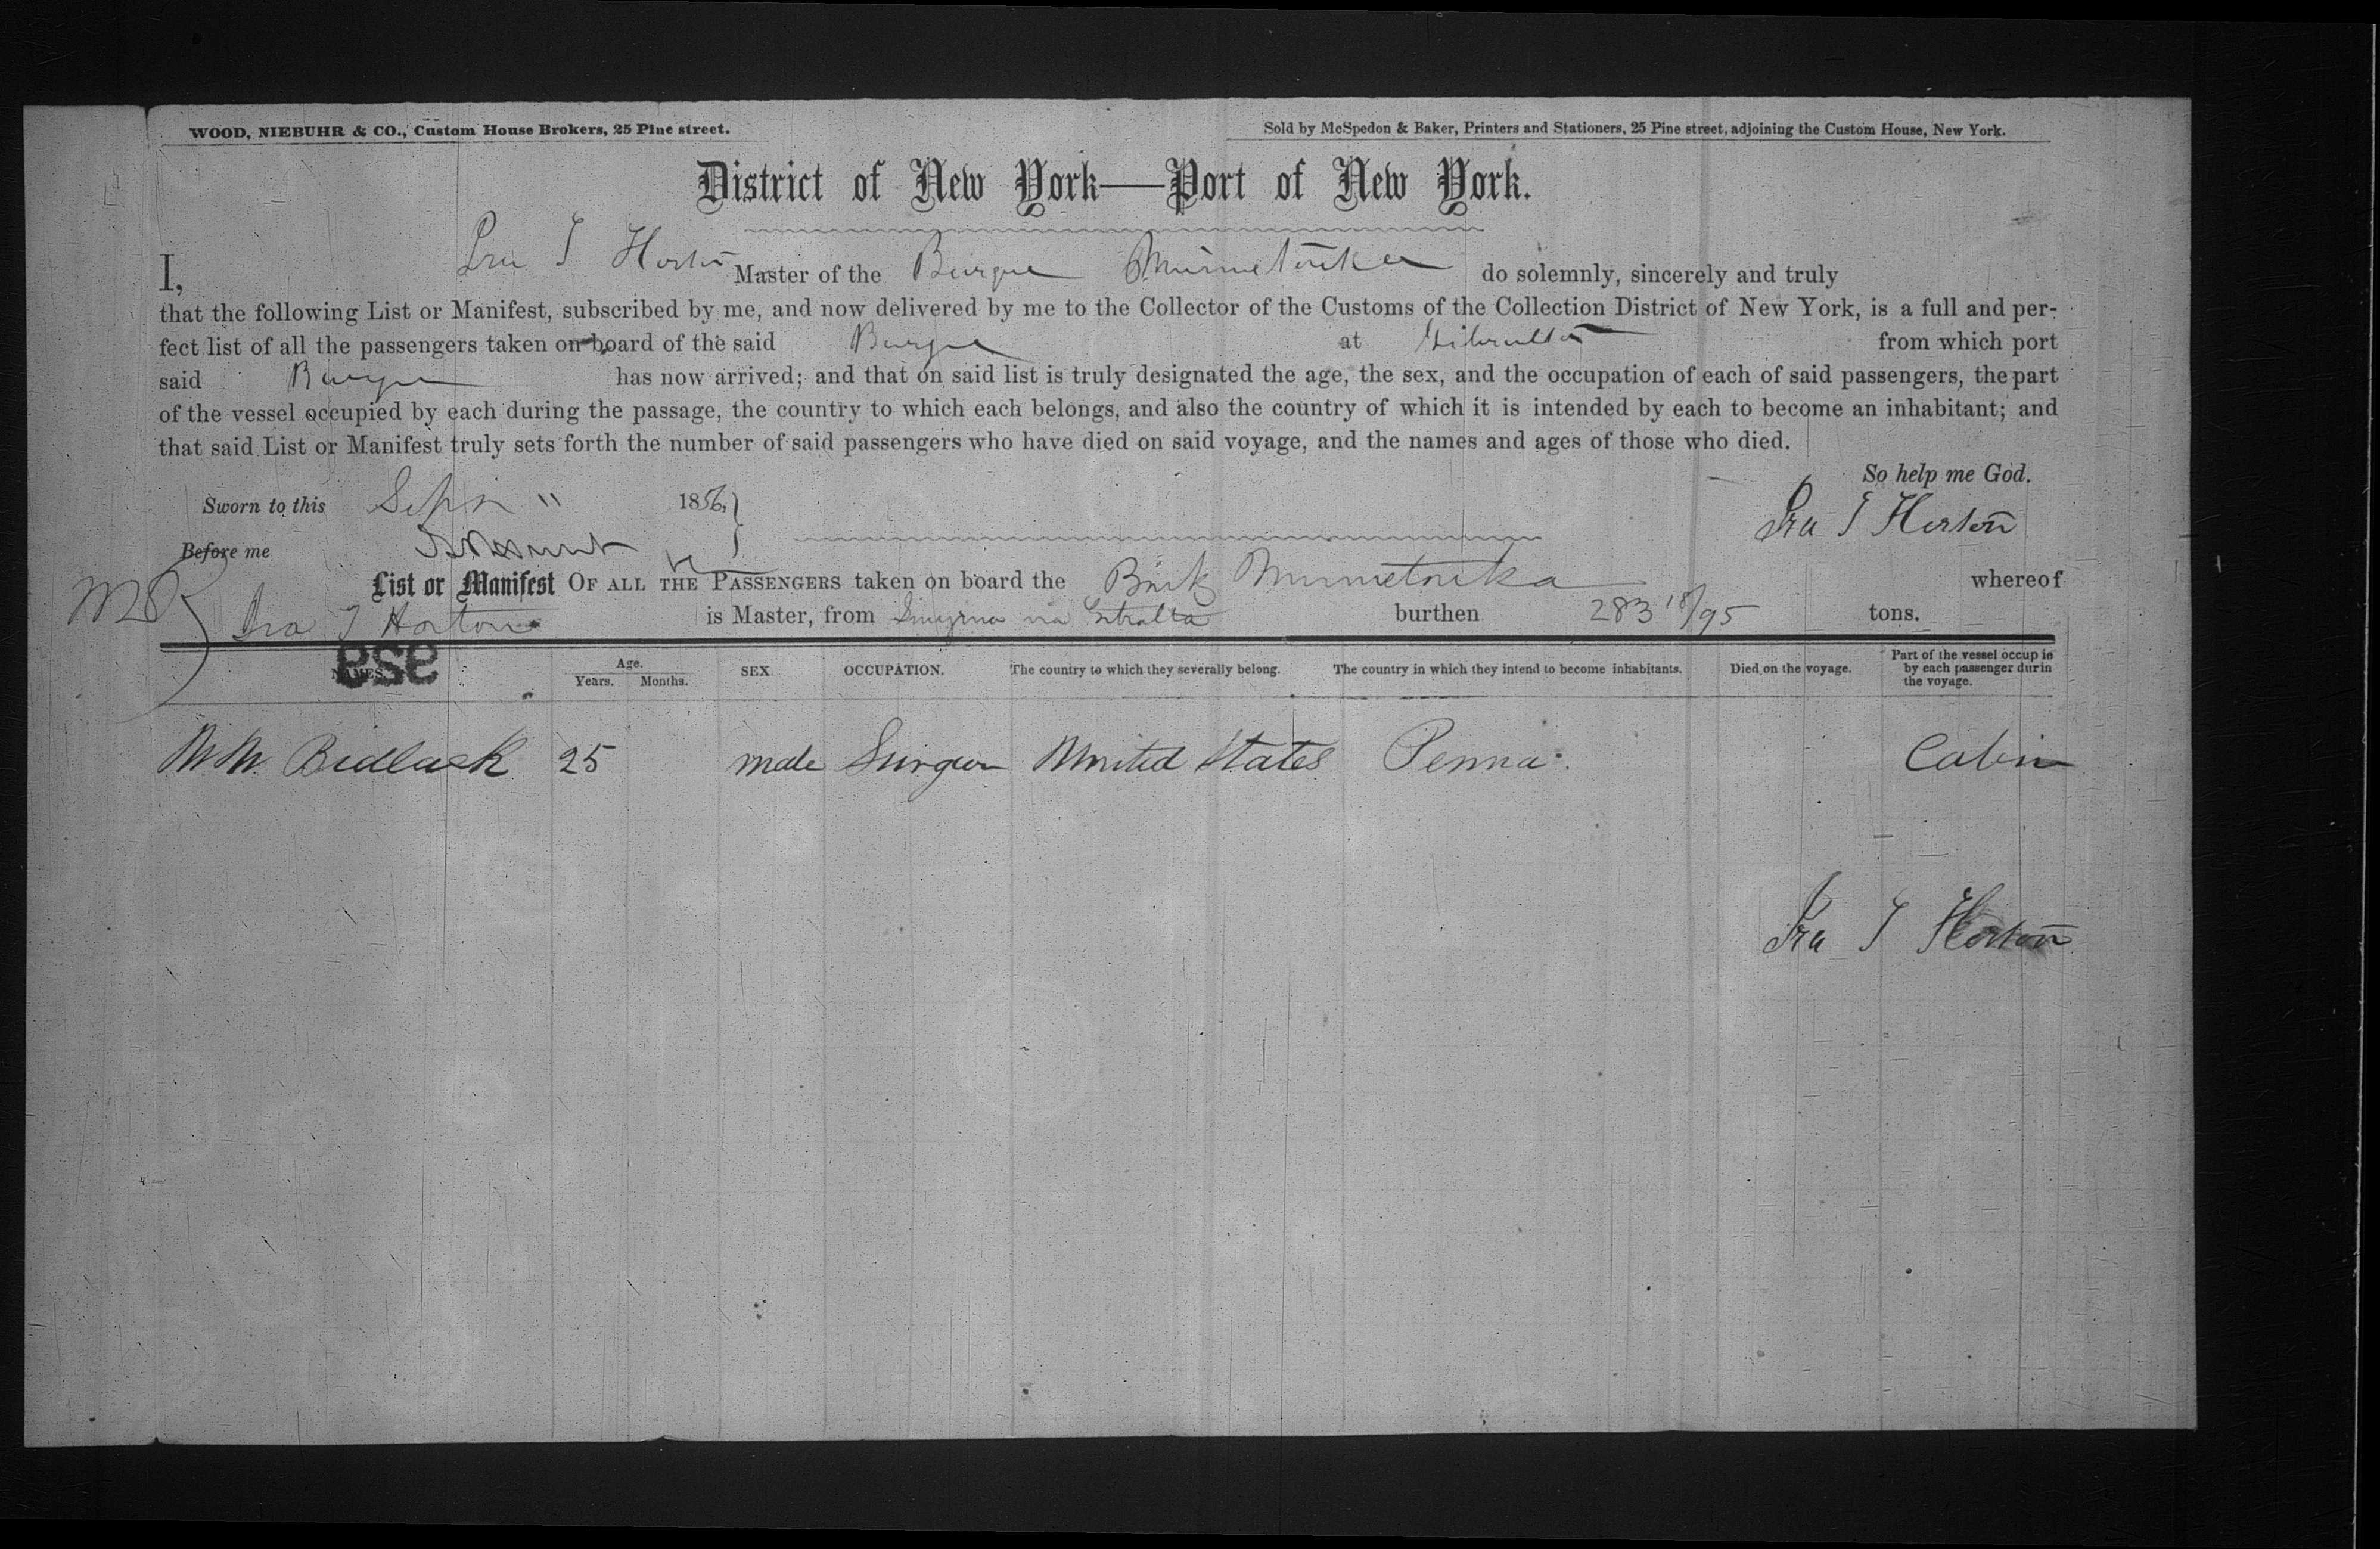 WOOD, NIEBUHR & CO., Custom House Brokers, 25 Pine street.
Sold by McSpedon & Baker, Printers and Stationers, 25 Pine street, adjoining the Custom House, New York.
District of New York—Port of New York.
I, Ira T Horton Master of the Barque Minnetonka do solemnly, sincerely and truly
that the following List or Manifest, subscribed by me, and now delivered by me to the Collector of the Customs of the Collection District of New York, is a full and per-
fect list of all the passengers taken on board of the said Barque at Gibralta from which port
said Barque has now arrived; and that on said list is truly designated the age, the sex, and the occupation of each of said passengers, the part
of the vessel occupied by each during the passage, the country to which each belongs, and also the country of which it is intended by each to become an inhabitant; and
that said List or Manifest truly sets forth the number of said passengers who have died on said voyage, and the names and ages of those who died.
So help me God.
Sworn to this 1856,
Ira T Horton
Before me
List or Manifest OF ALL THE PASSENGERS taken on board the Bark Minnetonka whereof
Ira T Horton is Master, from Smyrna via Gibralta burthen 283 18/95 tons.
ese
NAMES. Age. Years. Months. SEX OCCUPATION. The country to which they severally belong. The country in which they intend to become inhabitants. Died on the voyage. Part of the vessel occup ie by each passenger durin the voyage.
W.W. Bidlack 25 male Surgeon United States Penna. Cabin
Ira T Horton